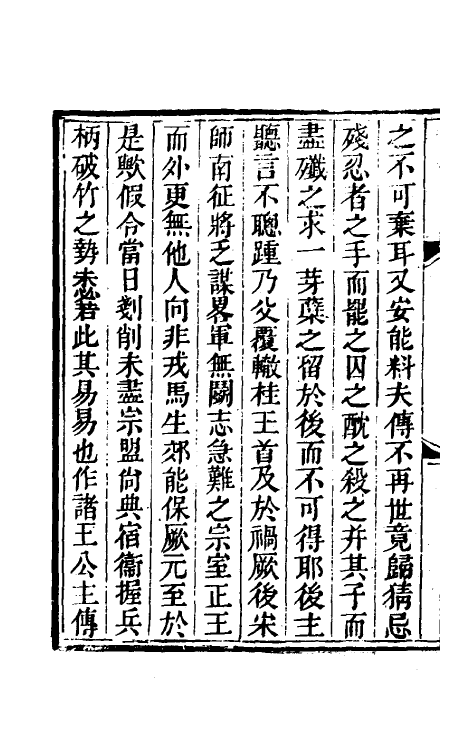 之不可棄耳又安能料夫傳不再世竟歸猜忌
殘忍者之手而罷之囚之酖之殺之幷其子而
盡殲之求一芽蘖之留於後而不可得耶後主
聽言不聰踵乃父覆轍桂王首及於禍厥後宋
師南征將乏謀畧軍無鬭志急難之宗室正王
而外更無他人向非戎馬生郊能保厥元至於
是歟假令當日剗削未盡宗盟尙典宿衞握兵
柄破竹之勢未必若此其易易也作諸王公主傳